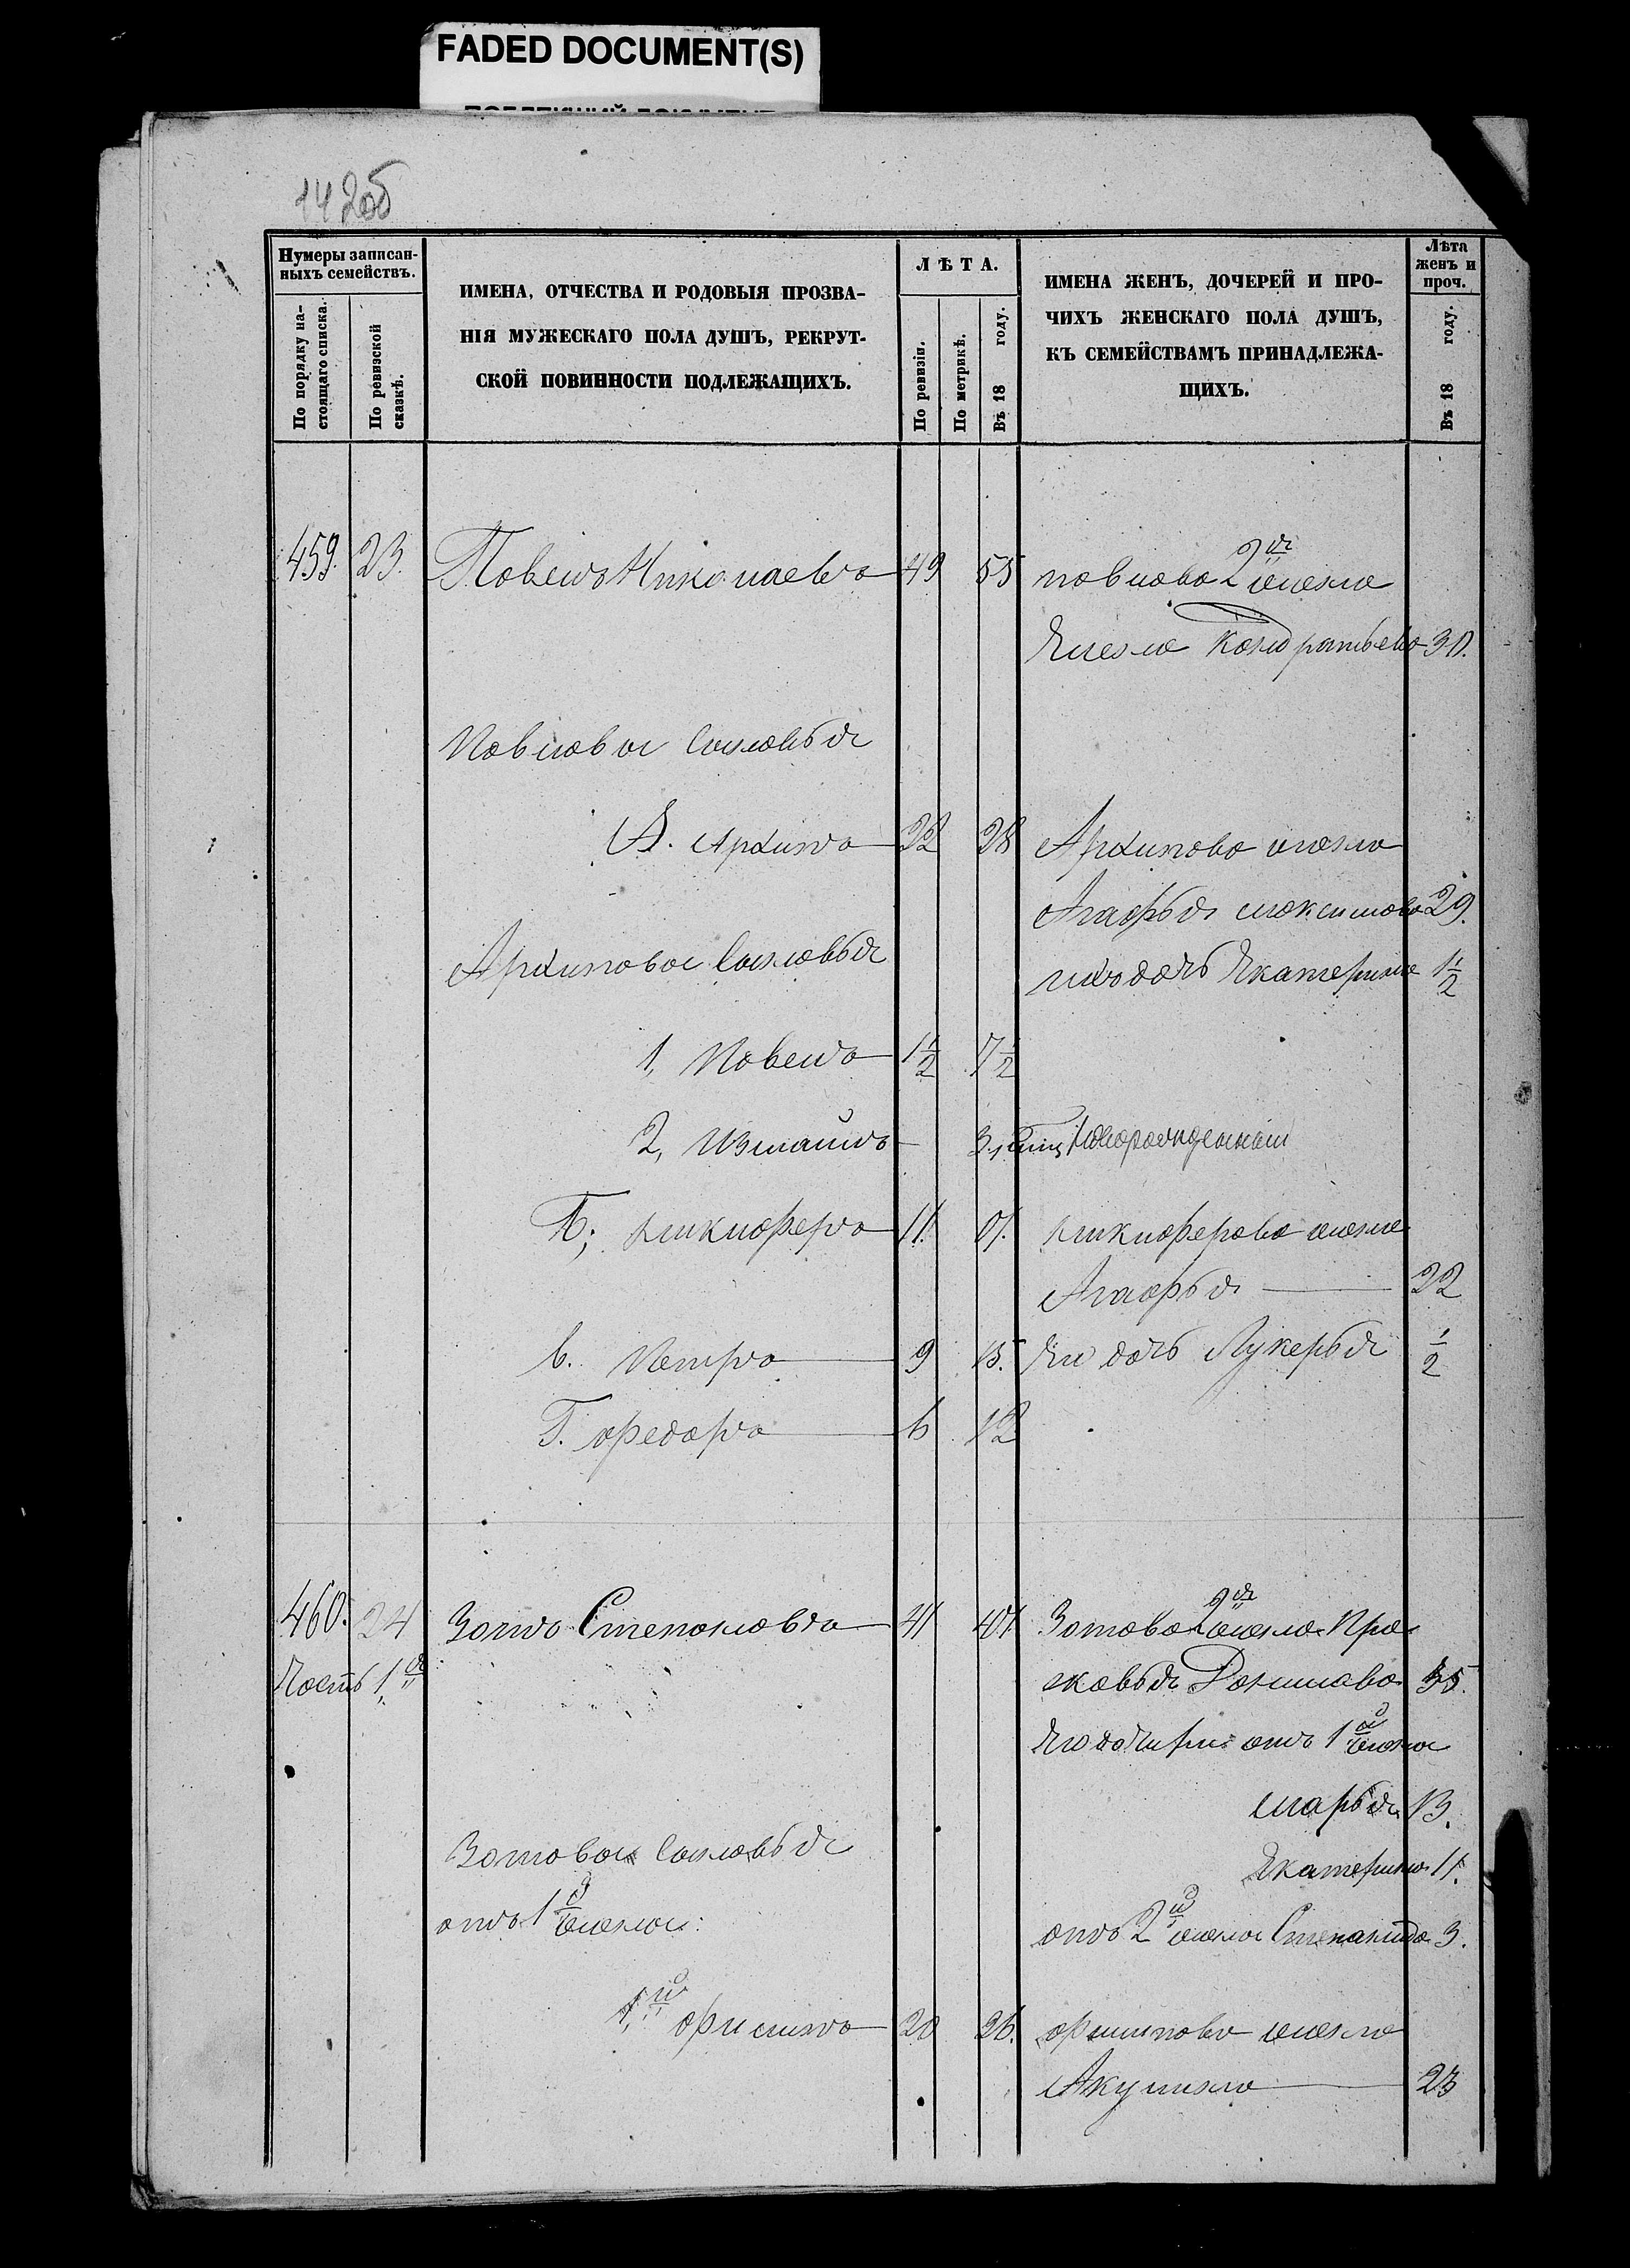 FADED DOCUMENT(S)
142об
Нумеры записан-
ныхъ семействъ.
По порядку на-
стоящаго списка.
По ревизской
сказкѣ.
ИМЕНА, ОТЧЕСТВА И РОДОВЫЯ ПРОЗВА-
НІЯ МУЖЕСКАГО ПОЛА ДУШЪ, РЕКРУТ-
СКОЙ ПОВИННОСТИ ПОДЛЕЖАЩИХЪ.
ЛѢТА.
По ревизіи.
По метрикѣ.
Въ 18 году.
ИМЕНА ЖЕНЪ, ДОЧЕРЕЙ И ПРО-
ЧИХЪ ЖЕНСКАГО ПОЛА ДУШЪ,
КЪ СЕМЕЙСТВАМЪ ПРИНАДЛЕЖА-
ЩИХЪ.
Лѣта
женъ и
проч.
Въ 18 году.
459. 23. Павелъ Николаевъ 49 55 павлова 2я жена
Елена Кондратьева 30.
Павловы Сыновья
А. Архипъ 22 28 Архипова жена
Агафья максимова 29.
Архиповы Сыновья ихъ дочь Екатерина 1 1/2
1, Павелъ 1 1/2 7 1/2
2, Измаилъ новорожденный
Б; никифоръ 11. никифорова жена
Агафья 22
в. Петръ 9 15. Ея дочь Лукерья 1/2
Г. федоръ 6 12
460. 24 Зотъ Степановъ 41 47 Зотова 2я жена Пра-
Часть 1я сковья Данилова 35.
Его дочери отъ 1й жены
марья 13.
Зотовы Сыновья
Екатерина 11.
отъ 1й жены:
отъ 2й жены Степанида 3.
1й филипъ 20 26. филипова жена
Акулина 23